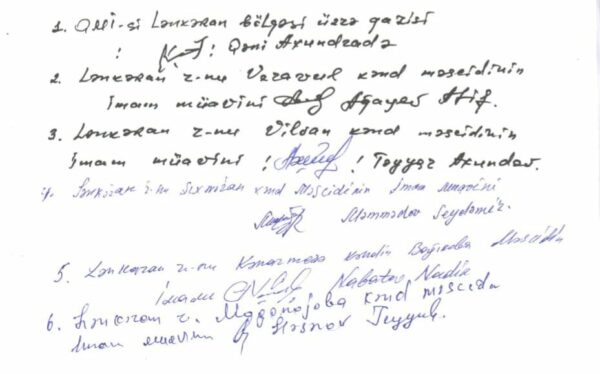 1. QMİ-si Lənkəran bölgəsi üzrə qazisi
: Qəni Axundzadə
2. Lənkəran r-nu Vərəvul kənd məscidinin
imam müavini Ağayev Atif.
3. Lənkəran r-nu Vilvan kənd məscidinin
imam müavini ! ! Təyyar Axundov.
4. Lənkəran r-nu kənd Məscidinin İmam Muavini
Məmmədov Seydəmir.
5. Lənkəran r-nu Kənarməşə kəndin Məscidin
İmamı Nabatov Nadir
6. Lənkəran r. kənd məscidi
imam muavini Həsənov Teyyub.